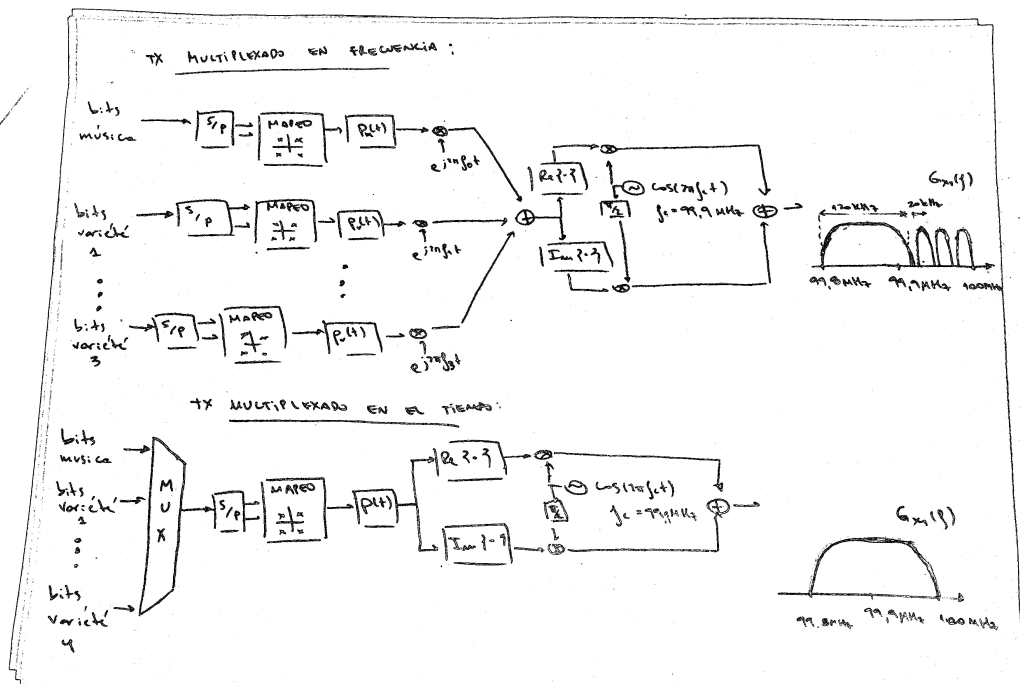 TX MULTIPLEXADO EN FRECUENCIA:
bits
música
S/P
MAPEO
e^{j2πf₀t}
bits
varieté
1
S/P
MAPEO
e^{j2πf₁t}
bits
varieté
3
S/P
MAPEO
e^{j2πf₃t}
Re{·}
Im{·}
π/2
cos(2πfct)
fc = 99,9 MHz
Gx₁(f)
120kHz
20kHz
99,8MHz
99,9MHz
100MHz
TX MULTIPLEXADO EN EL TIEMPO:
bits
musica
bits
varieté
1
bits
varieté
4
MUX
S/P
MAPEO
p(t)
Re{·}
Im{·}
π/2
cos(2πfct)
fc = 99,9MHz
Gx₁(f)
99,8MHz
99,9MHz
100MHz